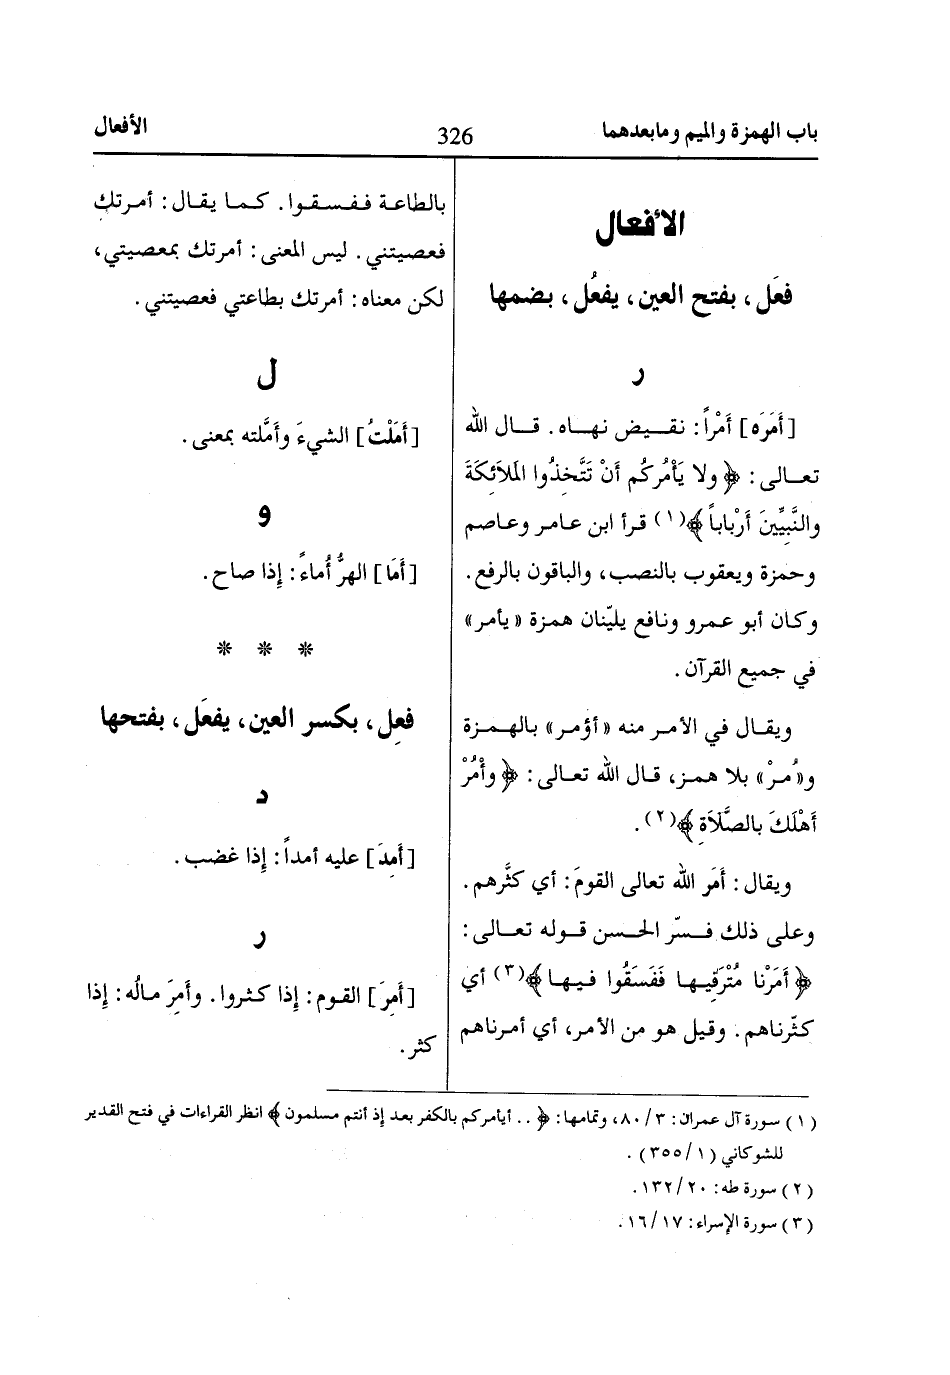 باب الهمزة والميم ومابعدهما
326
الأفعال
الأفعال
فعَل، بفتح العين، يفعُل، بضمها
ر
[أَمَرَه] أَمْراً: نقيض نهاه. قال الله
تعالى: ﴿ ولا يَأْمُركُم أَنْ تَتَّخِذُوا المَلاَئِكَةَ
والنَّبِيِّينَ أَرْبَاباً ﴾(١) قرأ ابن عامر وعاصم
وحمزة ويعقوب بالنصب، والباقون بالرفع.
وكان أبو عمرو ونافع يليّنان همزة «يأمر»
في جميع القرآن.
ويقال في الأمر منه «أؤمر» بالهمزة
و«مُرْ» بلا همز، قال الله تعالى: ﴿ وأْمُرْ
أَهْلَكَ بالصَّلاَةِ ﴾(٢).
ويقال: أَمَر الله تعالى القومَ: أي كثَّرهم.
وعلى ذلك فسّر الحسن قوله تعالى:
﴿ أَمَرْنا مُتْرَفِيها فَفَسَقُوا فيها ﴾(٣) أي
كثّرناهم. وقيل هو من الأمر، أي أمرناهم
بالطاعة ففسقوا. كما يقال: أمرتك
فعصيتني. ليس المعنى: أمرتك بمعصيتي،
لكن معناه: أمرتك بطاعتي فعصيتني.
ل
[أَمَلْتُ] الشيءَ وأَمَّلته بمعنى.
و
[أَمَا] الهرُّ أُماءً: إِذا صاح.
* * *
فعِل، بكسر العين، يفعَل، بفتحها
د
[أَمِدَ] عليه أمداً: إِذا غضب.
ر
[أَمِرَ] القوم: إِذا كثروا. وأَمِرَ مالُه: إِذا
كثر.
(١) سورة آل عمران: ٨٠/٣، وتمامها: ﴿ .. أيأمركم بالكفر بعد إذ أنتم مسلمون ﴾ انظر القراءات في فتح القدير
للشوكاني (٣٥٥/١).
(٢) سورة طه: ١٣٢/٢٠.
(٣) سورة الإسراء: ١٦/١٧.